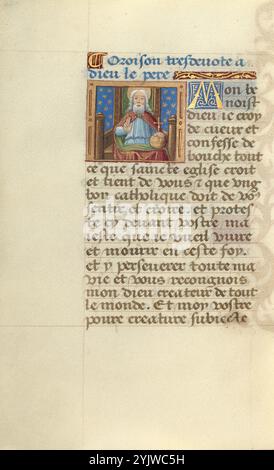 Oroison tresdevote a
dieu le pere
Mon be
noist
dieu ie croy
de cueur et
confesse de
bouche tout
ce que saincte eglise croit
et tient de vous & que ung
bon catholique doit de vo9
sentir et croire et protes
te cy devant vostre ma
ieste que ie vueil vivre
et mourir en ceste foy.
et y perseverer toute ma
vie et vous recongnois
mon dieu createur de tout
le monde. Et moy vostre
povre creature subiecte
alamy
Image ID: 2YJWC5H
www.alamy.com